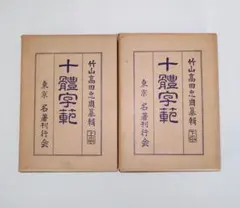 竹山高田忠周纂輯
十體字範
東京 名著刊行会
竹山高田忠周纂輯
十體字範
東京 名著刊行会